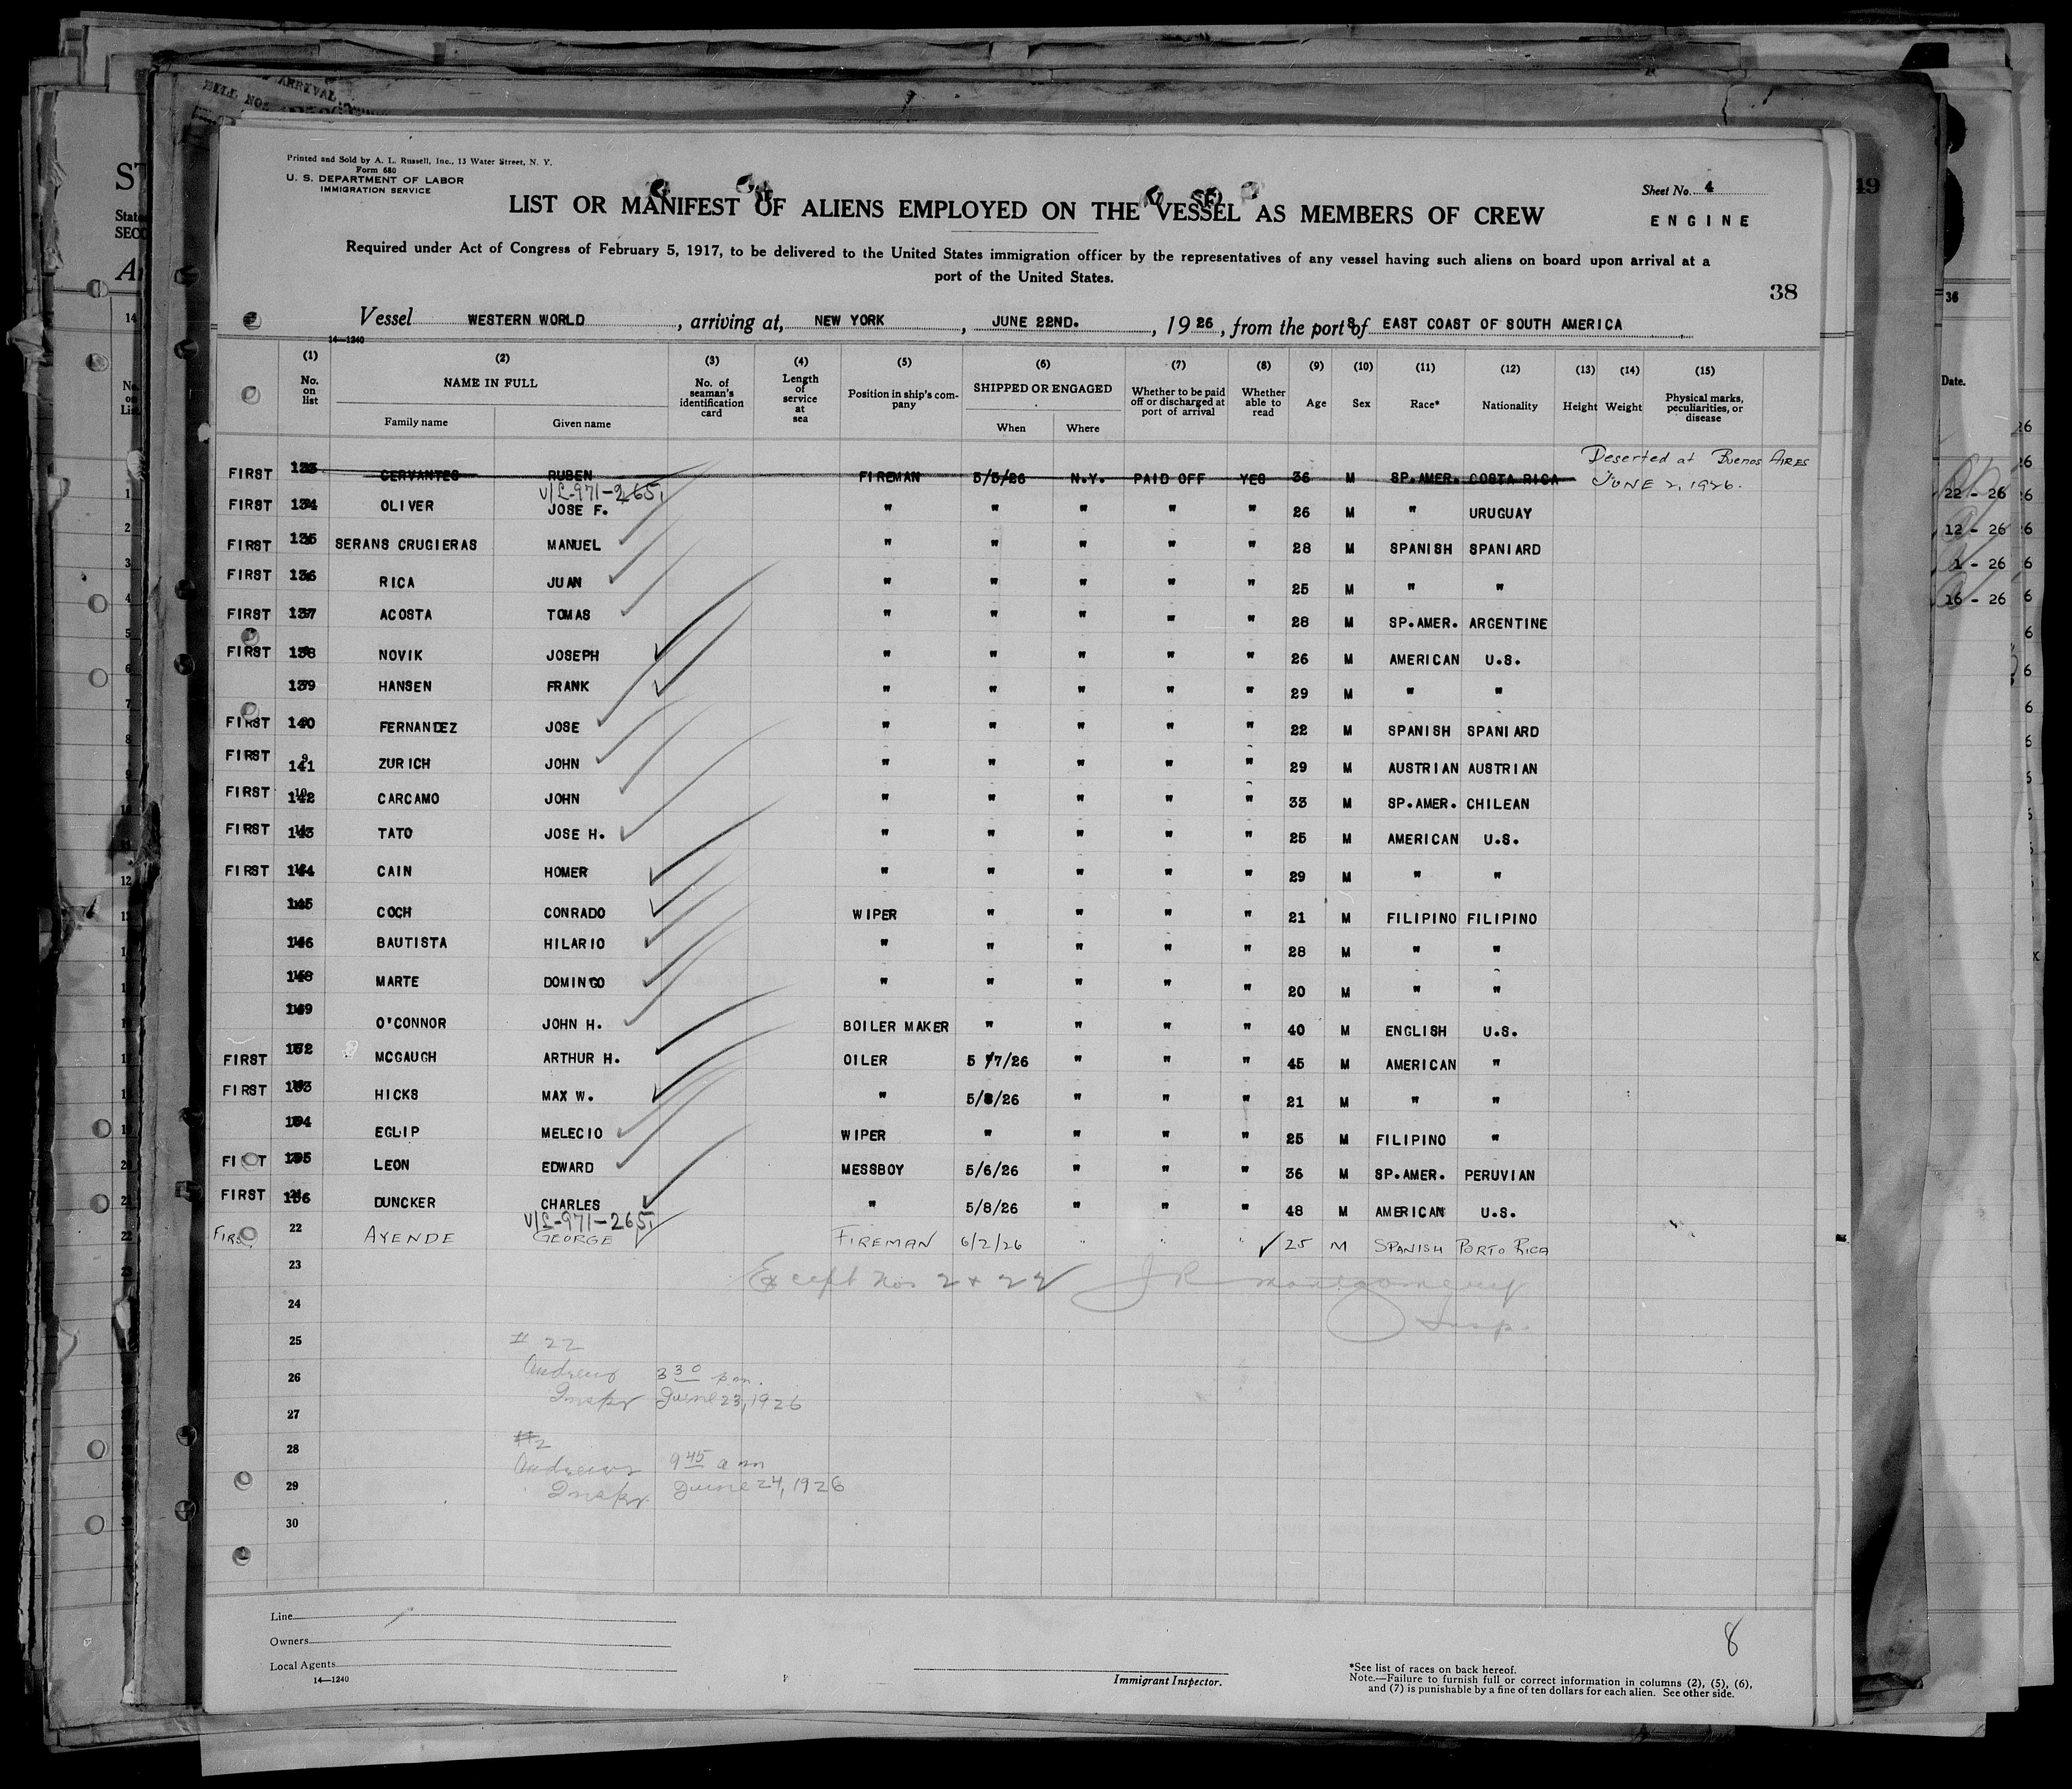 Printed and Sold by A. L. Russell, Inc., 13 Water Street, N. Y.
Form 680
U. S. DEPARTMENT OF LABOR
IMMIGRATION SERVICE
Sheet No. 4
ENGINE
LIST OR MANIFEST OF ALIENS EMPLOYED ON THE VESSEL AS MEMBERS OF CREW
Required under Act of Congress of February 5, 1917, to be delivered to the United States immigration officer by the representatives of any vessel having such aliens on board upon arrival at a
port of the United States.
38
Vessel WESTERN WORLD, arriving at, NEW YORK, JUNE 22ND., 1926, from the ports of EAST COAST OF SOUTH AMERICA
14—1240
(1) (2) (3) (4) (5) (6) (7) (8) (9) (10) (11) (12) (13) (14) (15)
No. on list NAME IN FULL Family name Given name No. of seaman's identification card Length of service at sea Position in ship's company SHIPPED OR ENGAGED When Where Whether to be paid off or discharged at port of arrival Whether able to read Age Sex Race* Nationality Height Weight Physical marks, peculiarities, or disease
FIRST 133 CERVANTES RUBEN FIREMAN 5/5/26 N.Y. PAID OFF YES 36 M SP.AMER. COSTA RICA Deserted at Buenos Aires JUNE 2, 1926.
V/L-971-265,
FIRST 134 OLIVER JOSE F. " " " " " 26 M " URUGUAY
FIRST 135 SERANS CRUGIERAS MANUEL " " " " " 28 M SPANISH SPANIARD
FIRST 136 RICA JUAN " " " " " 25 M " "
FIRST 137 ACOSTA TOMAS " " " " " 28 M SP.AMER. ARGENTINE
FIRST 138 NOVIK JOSEPH " " " " " 26 M AMERICAN U.S.
139 HANSEN FRANK " " " " " 29 M " "
FIRST 140 FERNANDEZ JOSE " " " " " 22 M SPANISH SPANIARD
FIRST 141 ZURICH JOHN " " " " " 29 M AUSTRIAN AUSTRIAN
FIRST 142 CARCAMO JOHN " " " " " 33 M SP.AMER. CHILEAN
FIRST 143 TATO JOSE H. " " " " " 25 M AMERICAN U.S.
FIRST 144 CAIN HOMER " " " " " 29 M " "
145 COCH CONRADO WIPER " " " " 21 M FILIPINO FILIPINO
146 BAUTISTA HILARIO " " " " " 28 M " "
148 MARTE DOMINGO " " " " " 20 M " "
149 O'CONNOR JOHN H. BOILER MAKER " " " " 40 M ENGLISH U.S.
FIRST 152 MCGAUGH ARTHUR H. OILER 5/7/26 " " " 45 M AMERICAN "
FIRST 153 HICKS MAX W. " 5/8/26 " " " 21 M " "
194 EGLIP MELECIO WIPER " " " " 25 M FILIPINO "
FIRST 195 LEON EDWARD MESSBOY 5/6/26 " " " 36 M SP.AMER. PERUVIAN
FIRST 196 DUNCKER CHARLES " 5/8/26 " " " 48 M AMERICAN U.S.
V/L-971-265,
FIRST 22 AYENDE GEORGE FIREMAN 6/2/26 " " " 25 M SPANISH PORTO RICA
23 Except Nos 2 + 22 J R Montgomery
24 Insp.
25 # 22
26 Andrews 3 30 p.m.
Inspr June 23, 1926
27
28 #2
Andrews 9 45 a m
29 Inspr. June 24, 1926
30
Line
Owners
Local Agents
14—1240
Immigrant Inspector.
8
*See list of races on back hereof.
Note.—Failure to furnish full or correct information in columns (2), (5), (6),
and (7) is punishable by a fine of ten dollars for each alien. See other side.
Date.
36
22 - 26
12 - 26
1 - 26
16 - 26